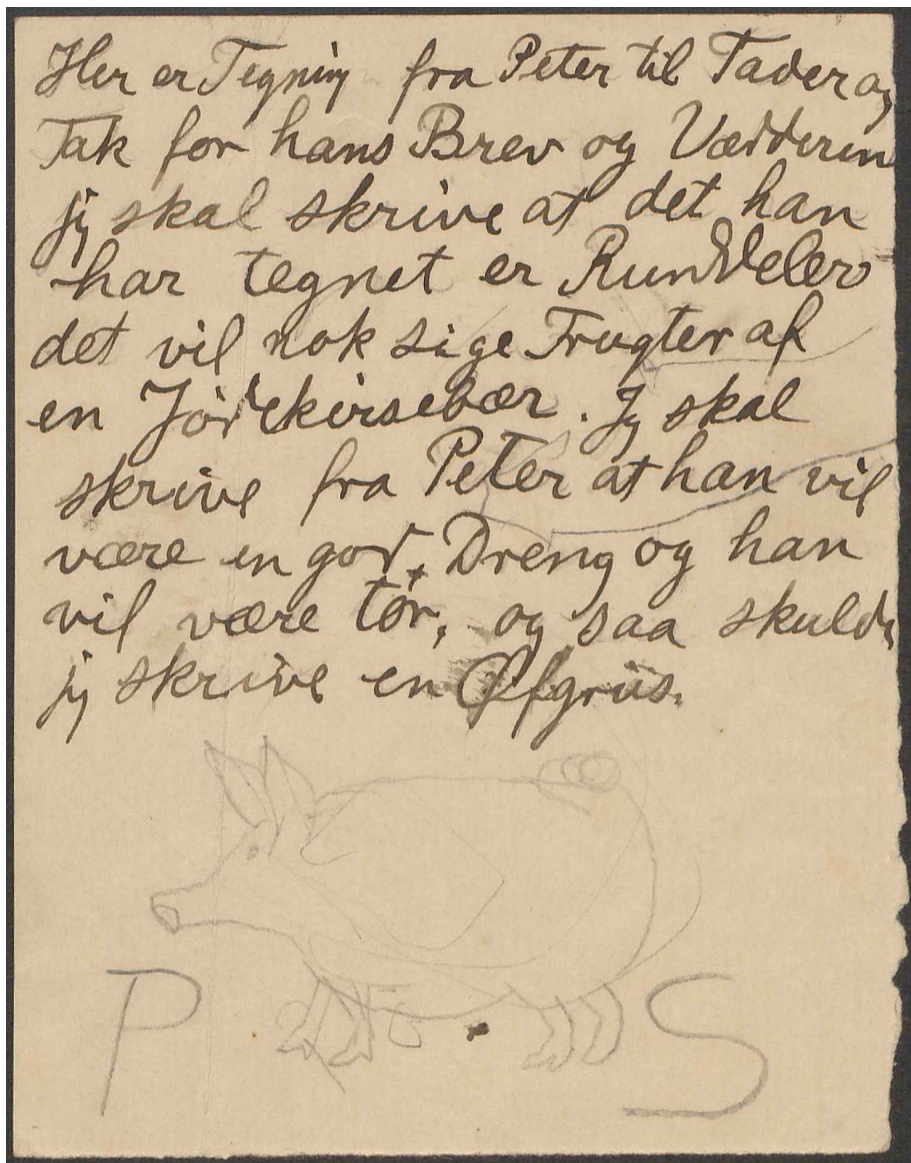 Her er Tegning fra Peter til Fader og
Tak for hans Brev og Vædderen
jeg skal skrive at det han
har tegnet er Runddeler
det vil nok sige Frugter af
en Jødekirsebær. Jeg skal
skrive fra Peter at han vil
være en god Dreng og han
vil være tør, og saa skulde
jeg skrive en Øfgris.
P S